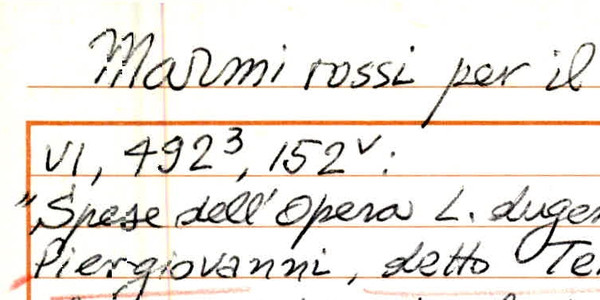 Marmi rossi per il
VI, 492³, 152ᵛ:
"Spese dell'Opera L. dugen
Piergiovanni, detto Te